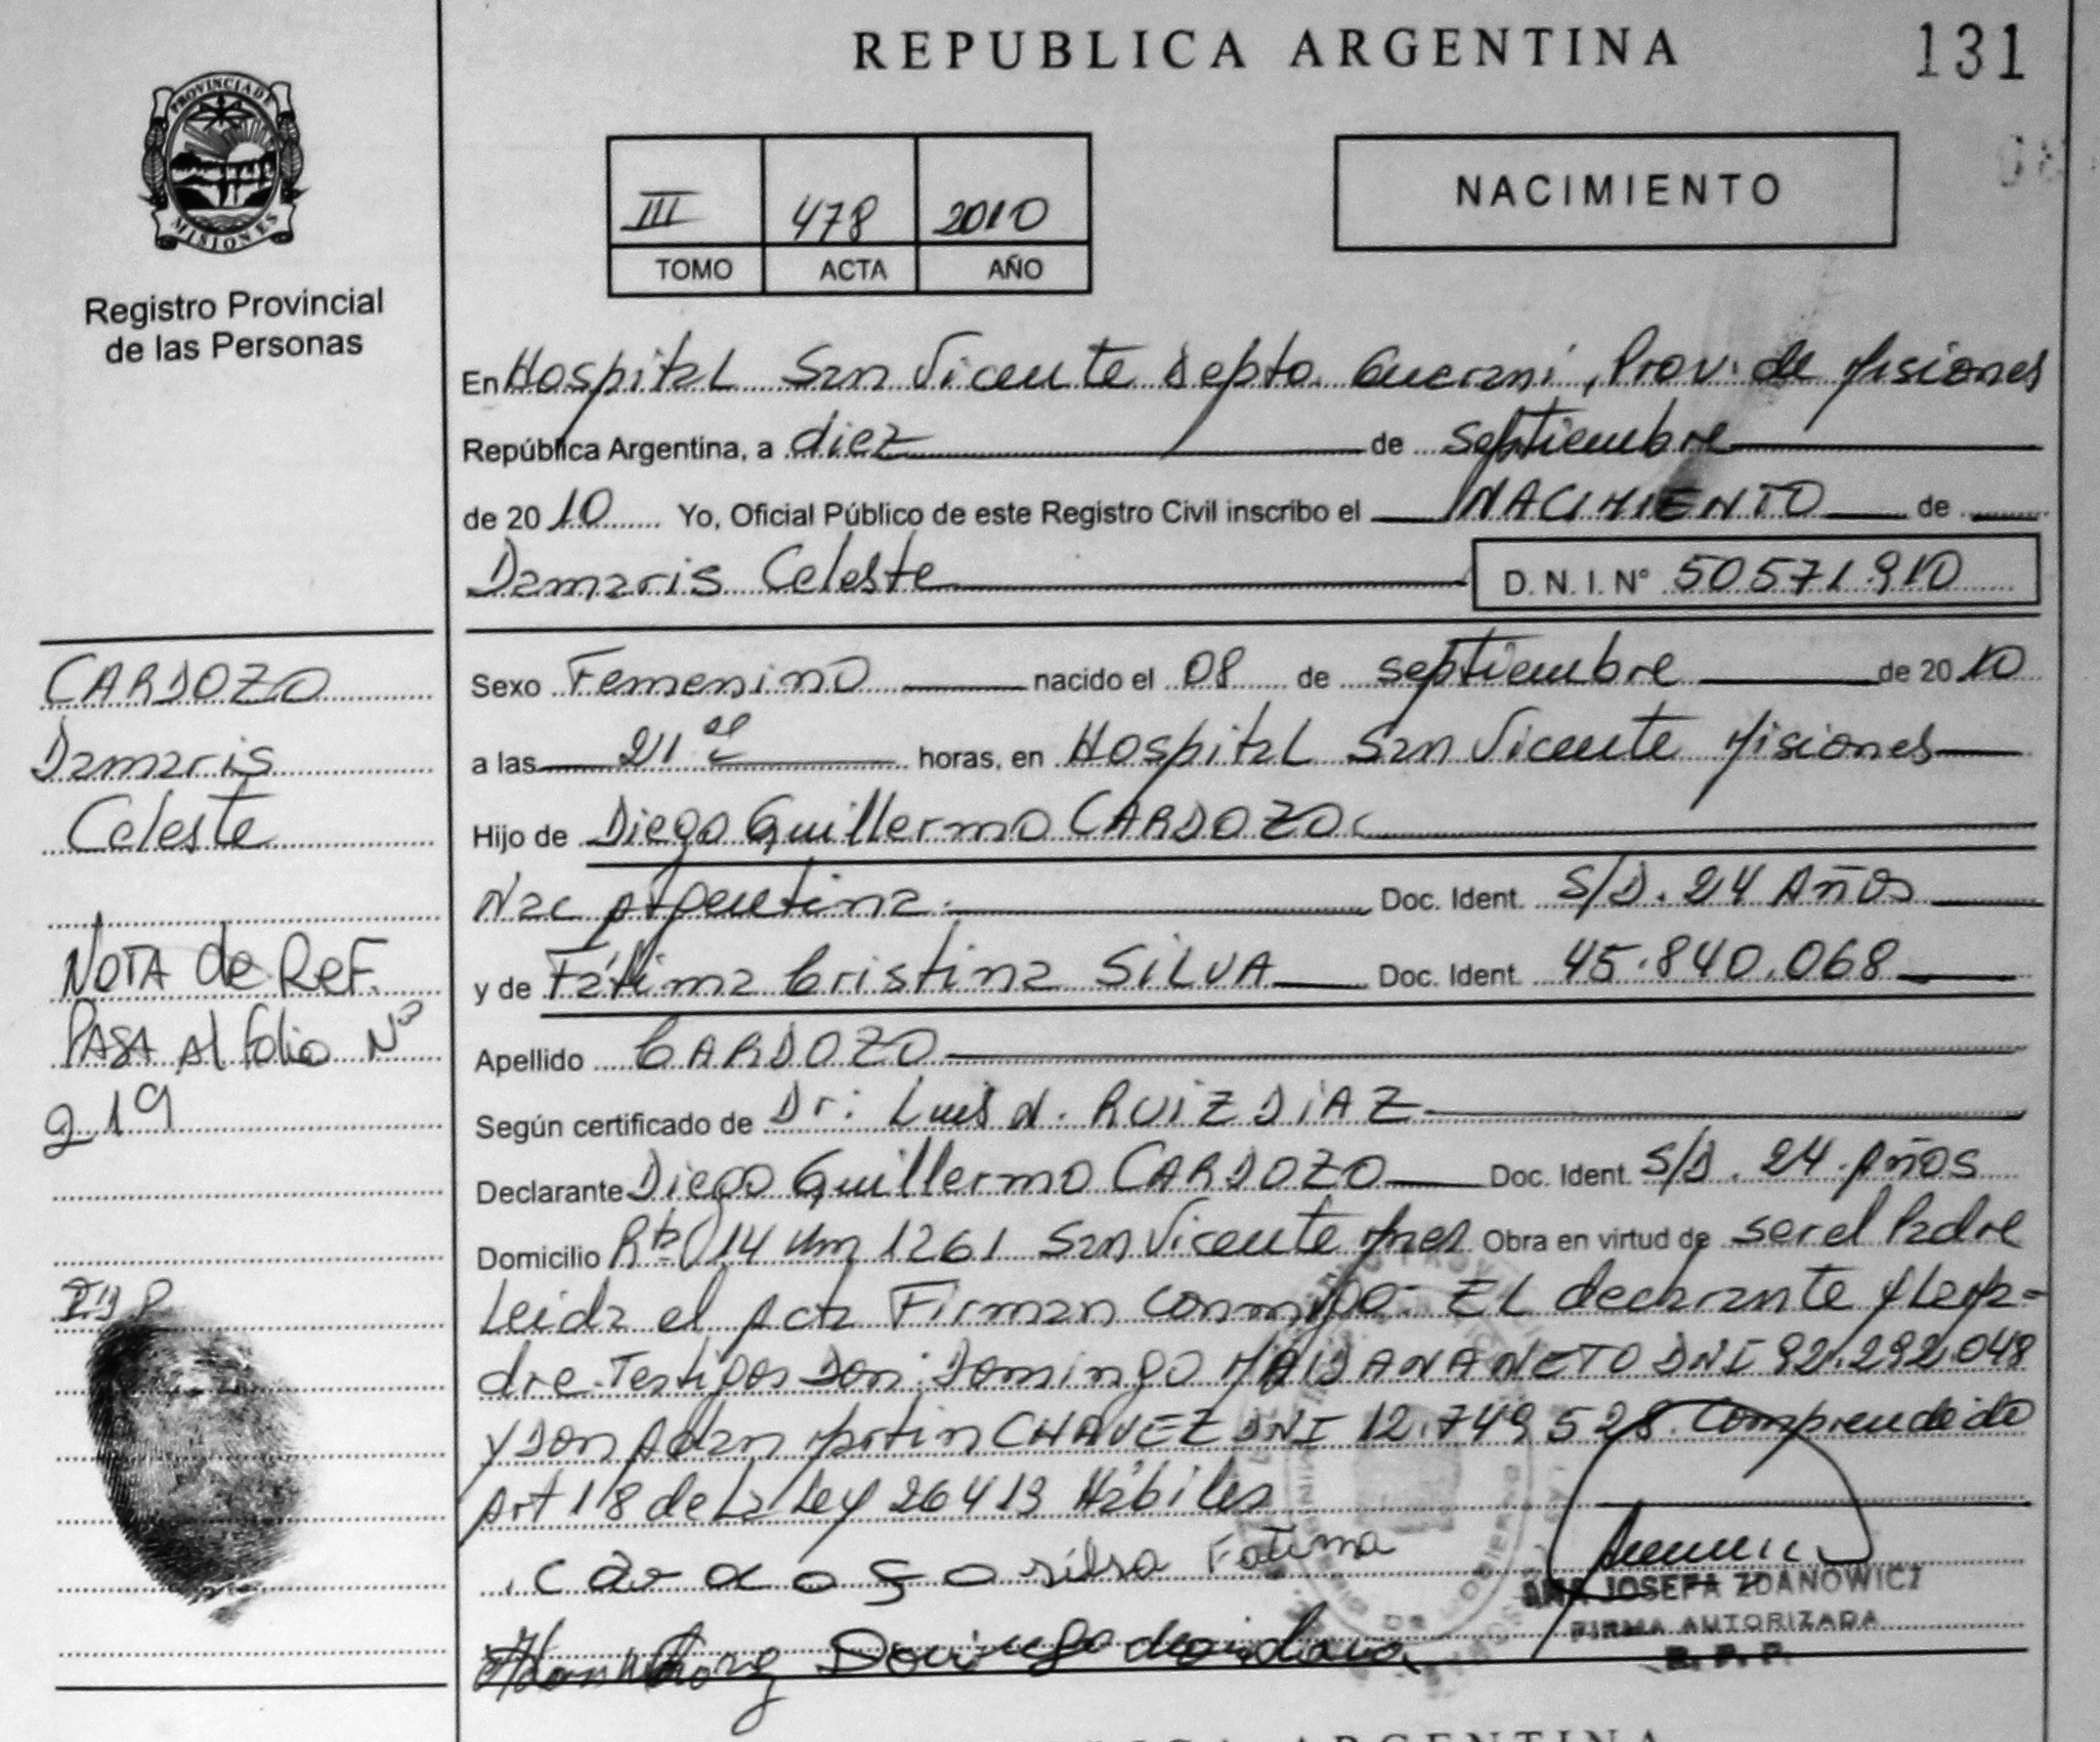 REPUBLICA ARGENTINA
131
PROVINCIA DE
MISIONES
Registro Provincial
de las Personas
III 478 2010
TOMO ACTA AÑO
NACIMIENTO
En Hospital San Vicente Depto. Guarani, Prov. de Misiones
República Argentina, a diez de septiembre
de 2010 Yo, Oficial Público de este Registro Civil inscribo el NACIMIENTO de
Damaris Celeste D. N. I. N° 50571.910
CARDOZO
Damaris
Celeste
NOTA de Ref.
PASA Al folio N°
219
I D P
Sexo Femenino nacido el 08 de septiembre de 2010
a las 21 horas, en Hospital San Vicente Misiones
Hijo de Diego Guillermo CARDOZO
Nac Argentina. Doc. Ident. S/D. 24 Años
y de Fátima Cristina SILVA Doc. Ident. 45.840.068
Apellido CARDOZO
Según certificado de Dr: Luis A. RUIZ DIAZ
Declarante Diego Guillermo CARDOZO Doc. Ident. S/D. 24. Años
Domicilio Rta 14 Km 1261 San Vicente Mnes Obra en virtud de ser el Padre
Leida el Acta Firman conmigo. EL declarante y la Ma-
dre. Testigos Don: Domingo MAIDANA NETO DNI 92.292.048
y Don Adan Martin CHAVEZ DNI 12.749.528. Comprendido
Art 18 de La Ley 26413 Hábiles
cardoso silva Fatima
ANA JOSEFA ZDANOWICZ
FIRMA AUTORIZADA
R. P. P.
Domingo maidana